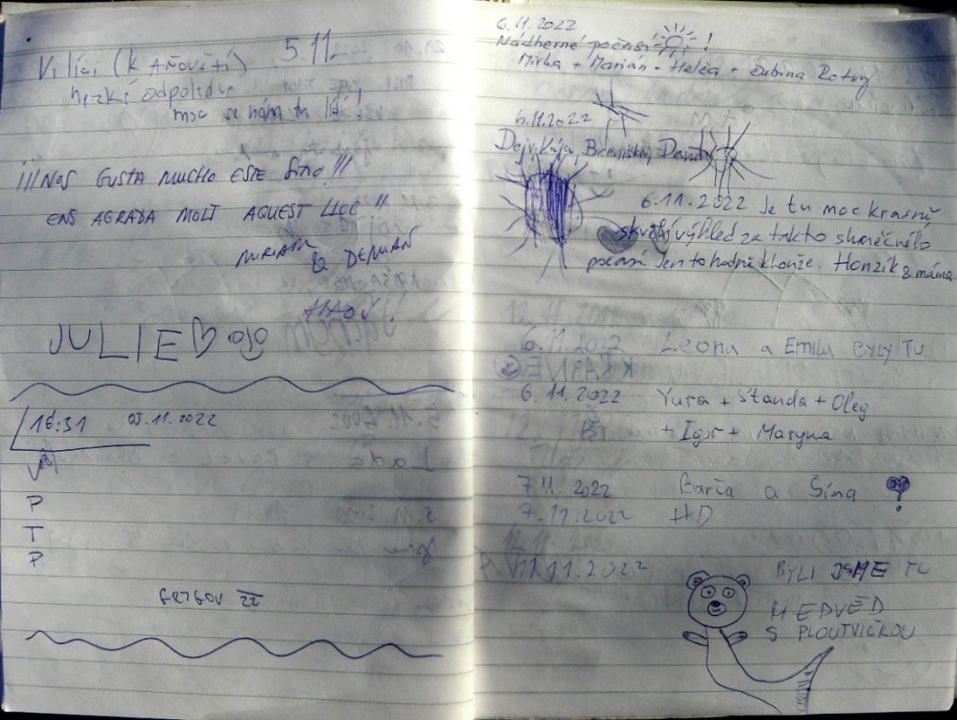 5.11.
hezké odpoledne
moc se nám tu líbí
¡¡¡NOS GUSTA MUCHO ESTE SITIO!!!
ENS AGRADA MOLT AQUEST LLOC!!
MIRIAM
& DEMIAN
AHOJ!
JULIE
16:31 05.11.2022
V
P
T
P
22
6.11.2022
Nádherné počasí !
Mirka + Marián + Helča +
6.11.2022
Dejv, Kája,
6.11.2022 Je tu moc krásně
skvělý výhled za takto slunečného
počasí Jen to hodně klouže. Honzík & máma
6.11.2022 Leona a Emila BYLY TU
6.11.2022 Yura + Standa + Oleg
+ Igor + Maryna
7.11.2022 Barča a Sima
7.11.2022 HD
11.11.2022 BYLI JSME TU
MEDVĚD
S PLOUTVIČKOU